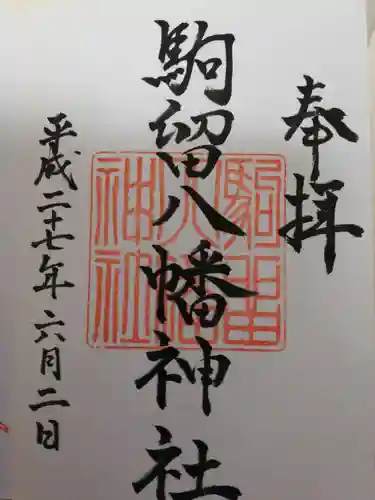 奉拝
駒留八幡神社
平成二十七年六月二日
駒留
八幡
神社